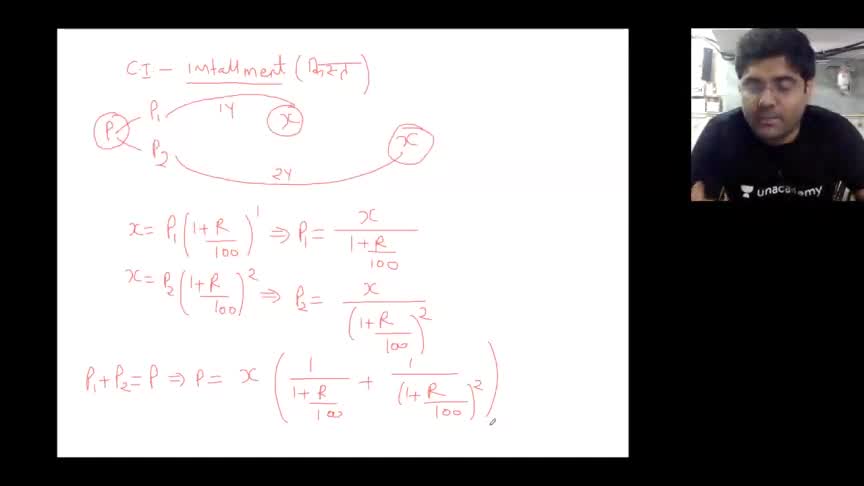 CI - intallment (किस्त)
P P₁ 1Y x
P₂ 2Y x
x = P₁(1+R/100)¹ ⇒ P₁ = x/(1+R/100)
x = P₂(1+R/100)² ⇒ P₂ = x/(1+R/100)²
P₁+P₂=P ⇒ P = x(1/(1+R/100) + 1/(1+R/100)²)
unacademy